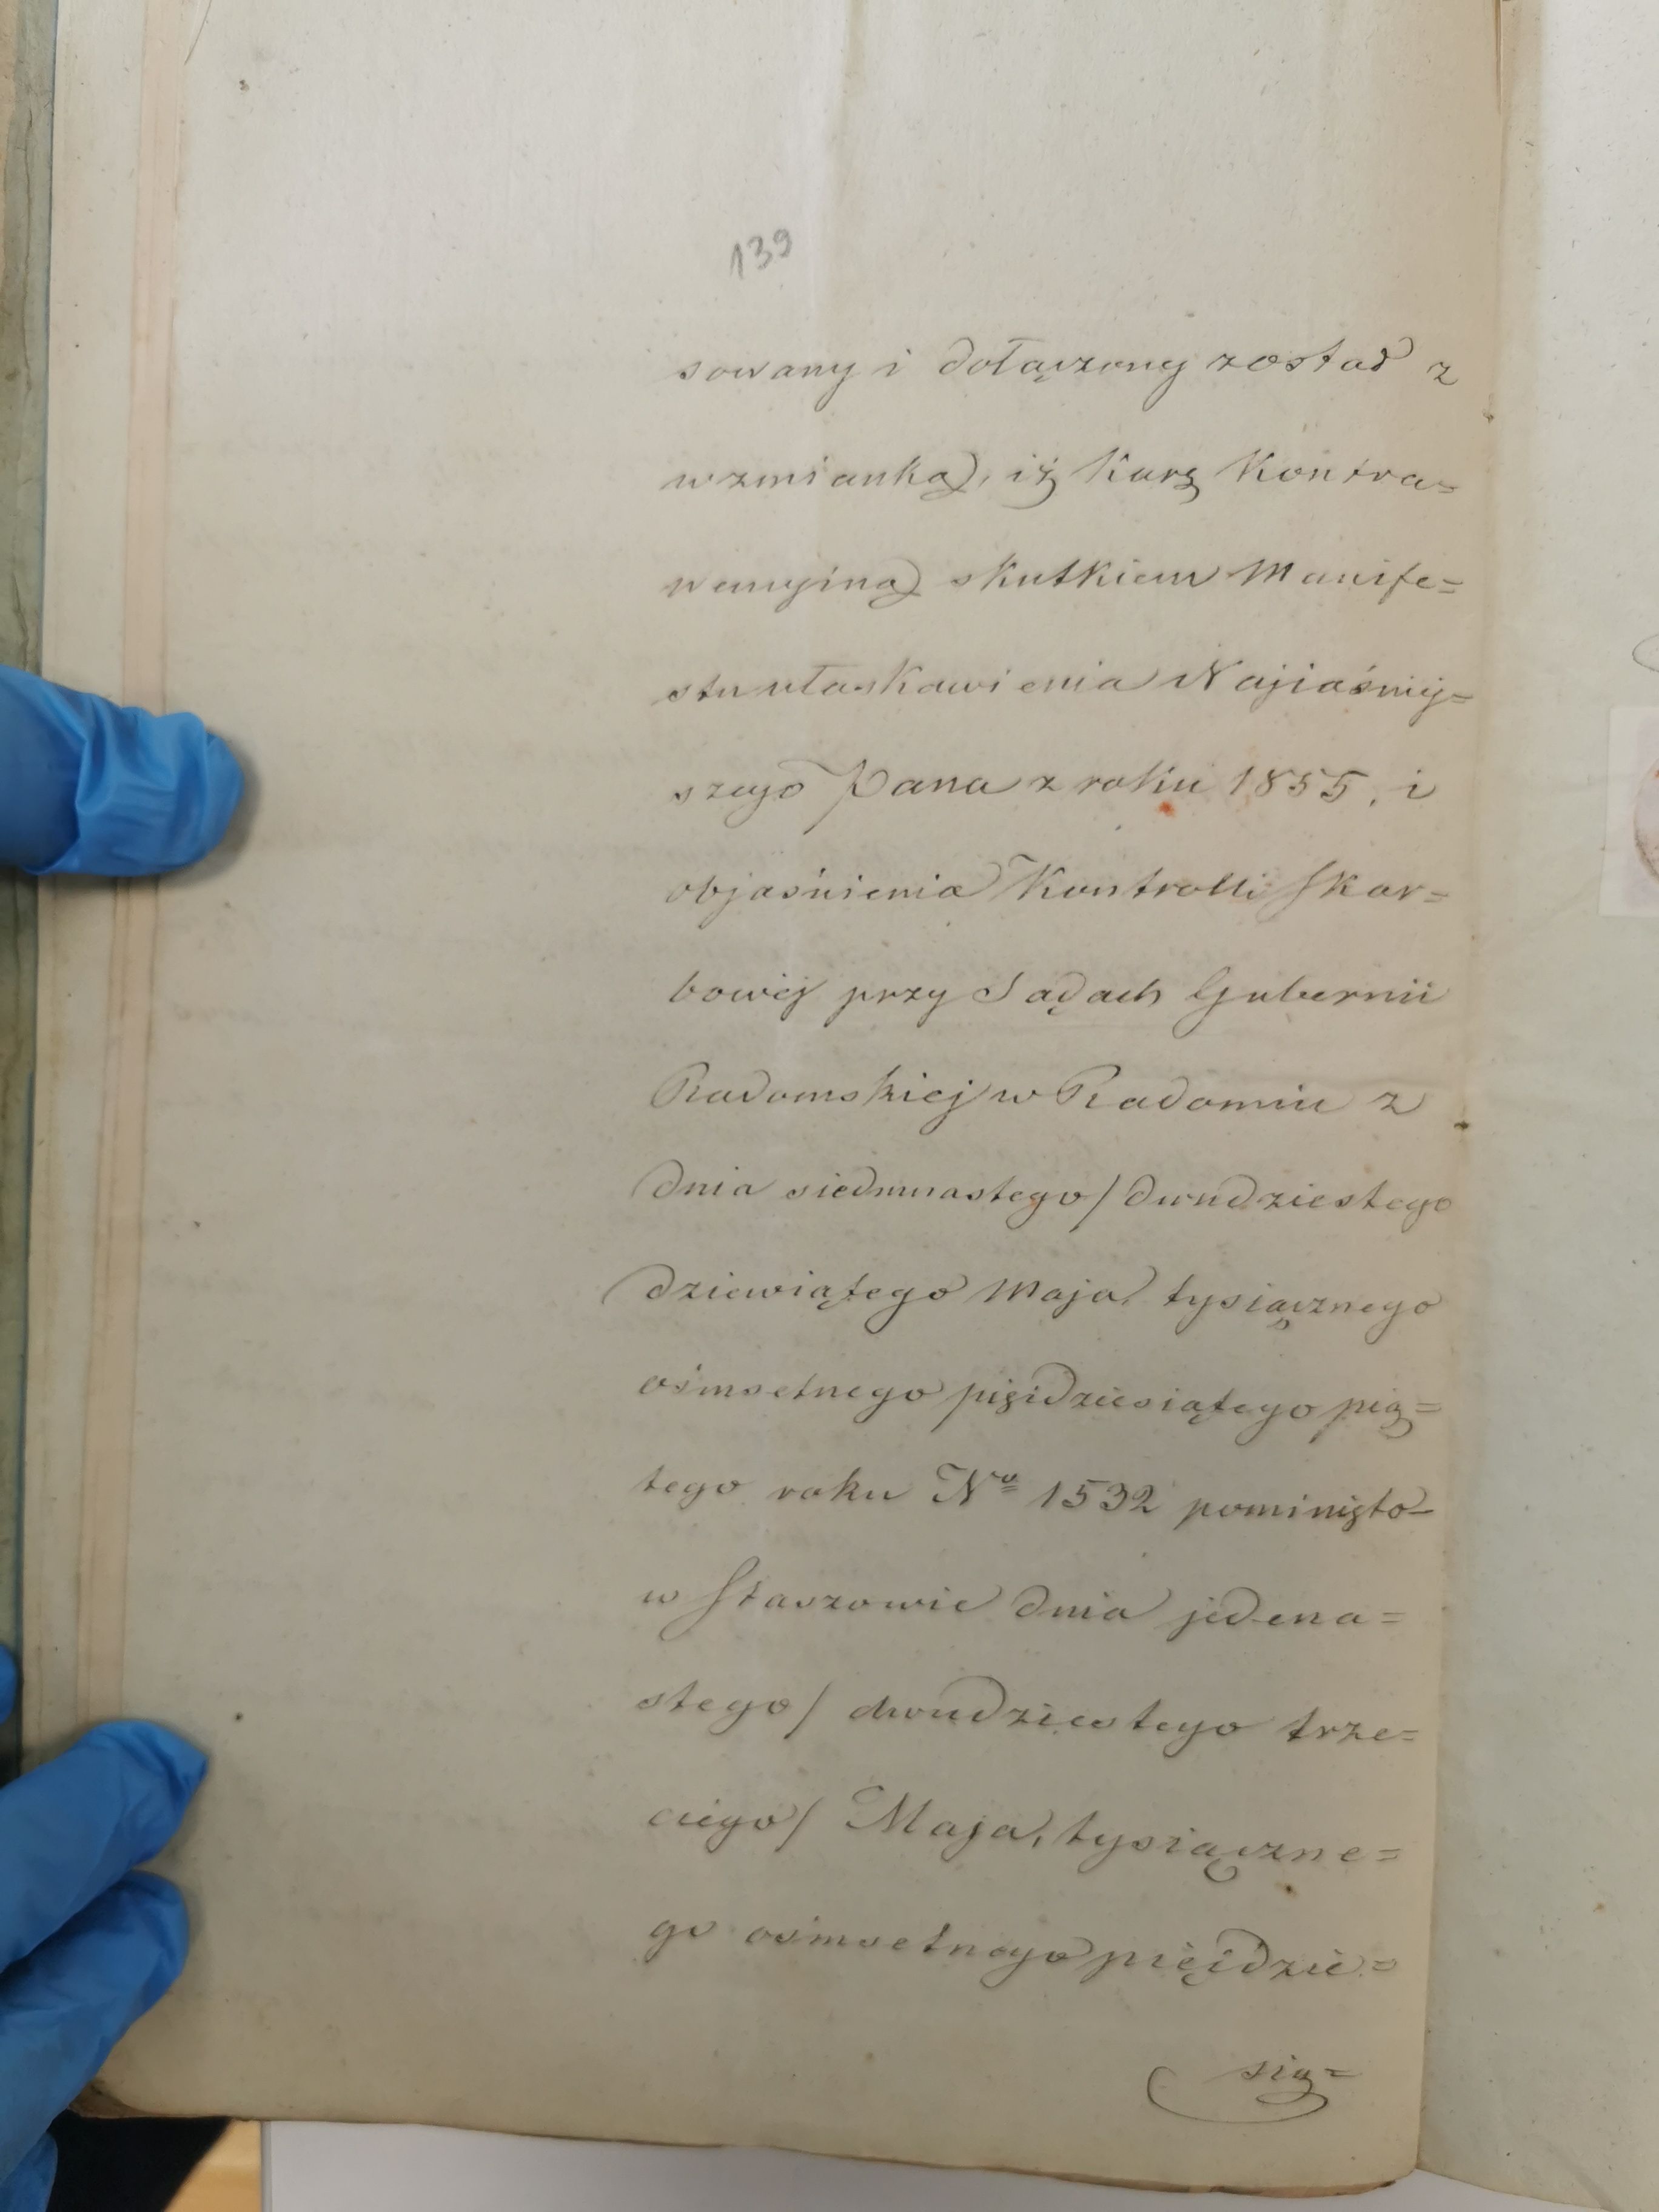 139
sowany i dołączony został z
wzmianką, iż karę Kontra=
wencyiną skutkiem Manife=
stu ułaskawienia Najiaśniej=
szego Pana z roku 1855, i
objaśnienia Kontrolli Skar=
bowéj przy Sądach Gubernii
Radomskiej w Radomiu z
dnia siedmnastego/dwudziestego
dziewiątego Maja, tysiącznego
ośmsetnego pięćdziesiątego pią=
tego roku No 1532 pominięto
w Staszowie dnia jedena=
stego/ dwudziestego trze=
ciego/ Maja, tysiączne=
go ośmsetnego pięćdzie=
sią=